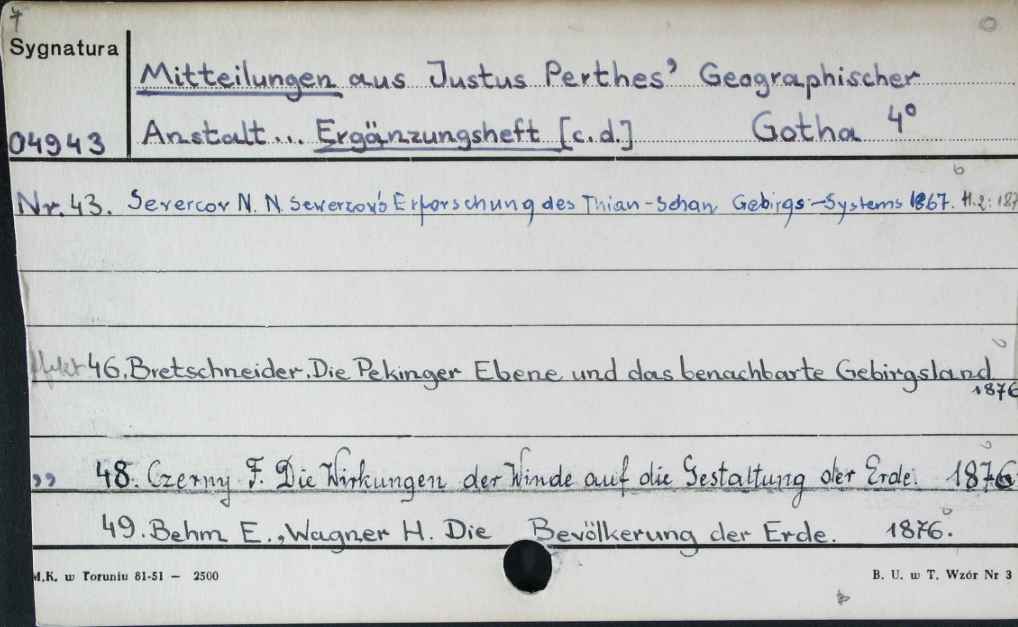 7
Sygnatura
Mitteilungen aus Justus Perthes' Geographischer
04943 Anstalt... Ergänzungsheft [c.d.] Gotha 4°
Nr. 43. Severcov N. N. Severcov's Erforschung des Thian-Schan Gebirgs-Systems 1867. H.2: 187
46. Bretschneider. Die Pekinger Ebene und das benachbarte Gebirgsland
1876
" 48. Czerny F. Die Wirkungen der Winde auf die Gestaltung der Erde. 1876
49. Behm E., Wagner H. Die Bevölkerung der Erde. 1876.
M.K. w Toruniu 81-51 — 2500 B. U. w T. Wzór Nr 3